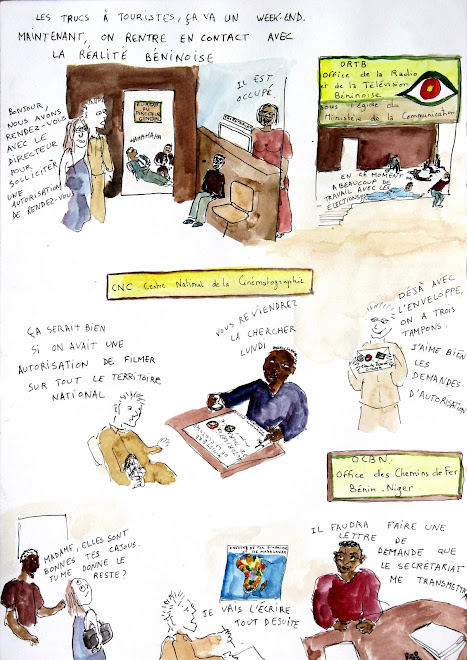 LES TRUCS À TOURISTES, ÇA VA UN WEEK-END.
MAINTENANT, ON RENTRE EN CONTACT AVEC
LA RÉALITÉ BÉNINOISE
BONJOUR,
NOUS AVONS
RENDEZ-VOUS
AVEC LE
DIRECTEUR
POUR
SOLLICITER
UNE
AUTORISATION
DE RENDEZ-VOUS
BUREAU
DU
DIRECTEUR
GENERAL
IL EST
OCCUPÉ
ORTB
Office de la Radio
et de la Télévision
Béninoise
sous l'égide du
Ministère de la Communication
EN CE MOMENT
A BEAUCOUP DE
TRAVAIL AVEC LES
ÉLECTIONS
CNC Centre National de la Cinématographie
ÇA SERAIT BIEN
SI ON AVAIT UNE
AUTORISATION DE FILMER
SUR TOUT LE TERRITOIRE
NATIONAL
VOUS REVIENDREZ
LA CHERCHER
LUNDI
DÉJÀ AVEC
L'ENVELOPPE,
ON A TROIS
TAMPONS.
J'AIME BIEN
LES
DEMANDES
D'AUTORISATION
OCBN
Office des Chemins de Fer
Bénin-Niger
MADAME, ELLES SONT
BONNES TES CAJOUS.
TU ME DONNE LE
RESTE?
JE VAIS L'ÉCRIRE
TOUT DE SUITE
IL FAUDRA FAIRE UNE
LETTRE DE
DEMANDE QUE
LE SECRÉTARIAT
ME TRANSMETTRA